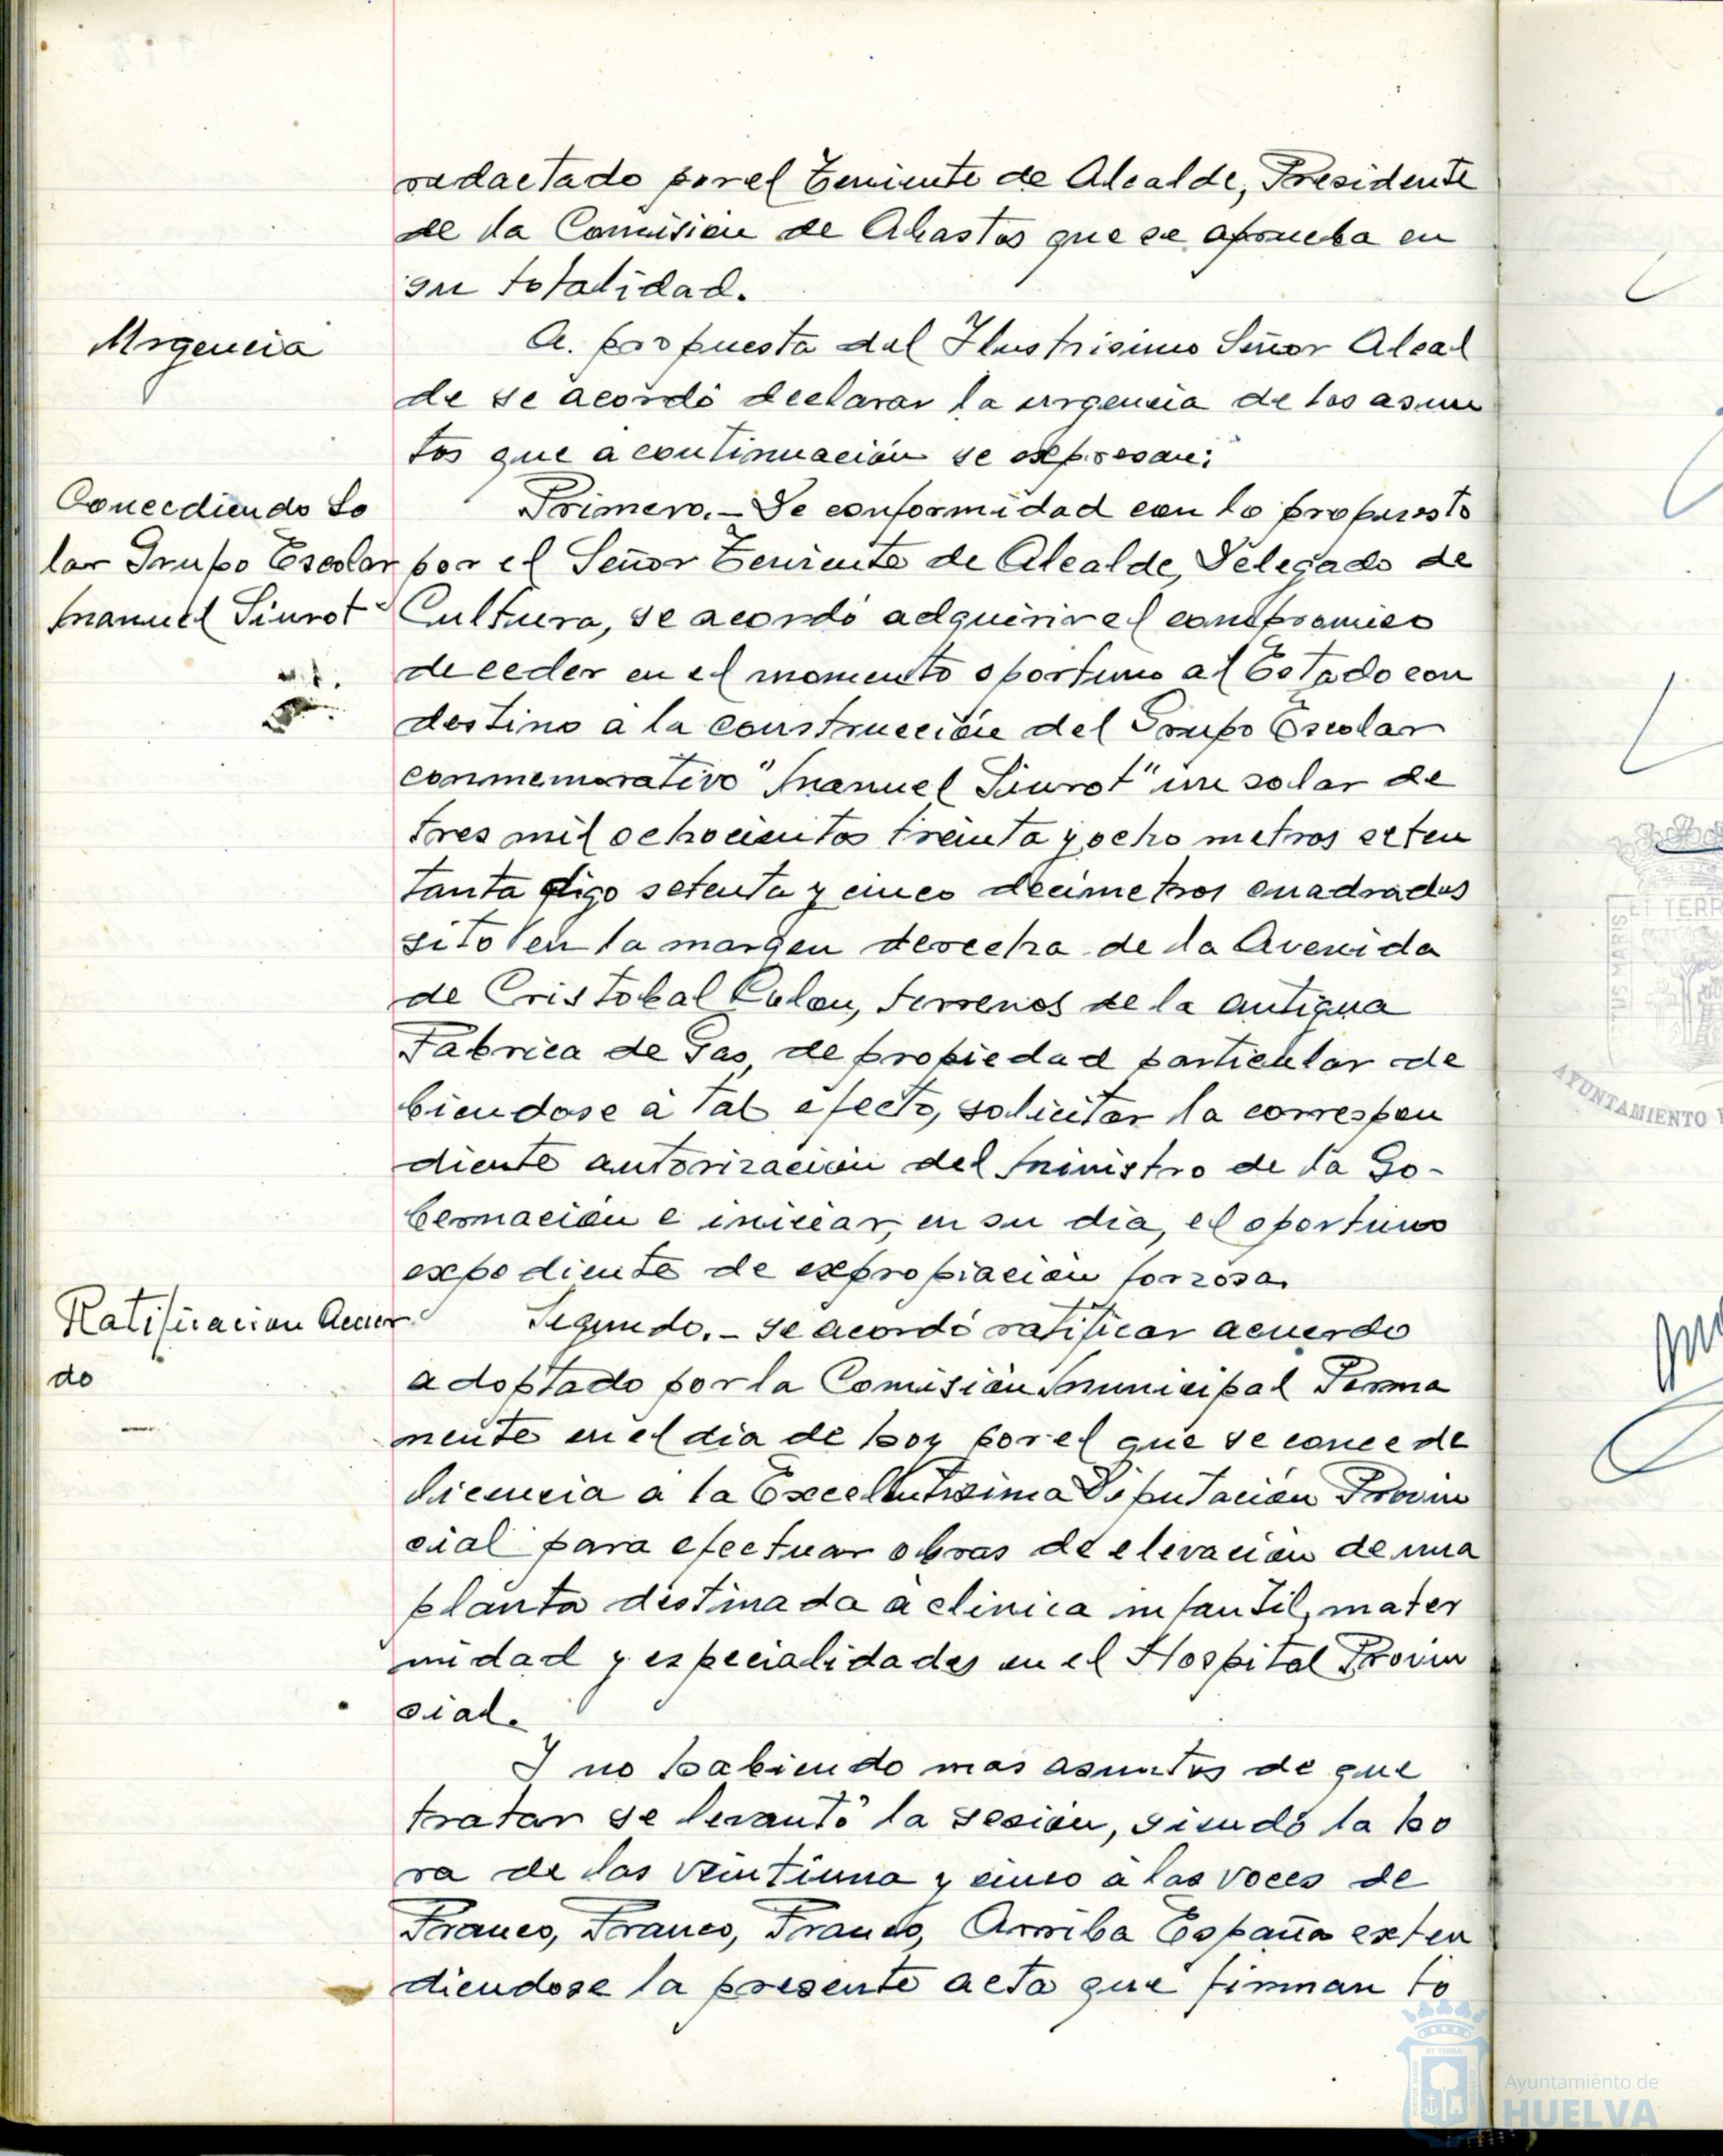 redactado por el Teniente de Alcalde, Presidente
de la Comisión de Abastos que se aprueba en
su totalidad.
Urgencia
A. propuesta del Ilustrisimo Señor Alcal
de se acordó declarar la urgencia de los asun
tos que a continuación se expresan:
Concediendo So
lar Grupo Escolar
Manuel Siurot
Primero.- De conformidad con lo propuesto
por el Señor Teniente de Alcalde, Delegado de
Cultura, se acordó adquirir el compromiso
de ceder en el momento oportuno al Estado con
destino a la construcción del Grupo Escolar
conmemorativo "Manuel Siurot" un solar de
tres mil ochocientos treinta y ocho metros seten
tanta digo setenta y cinco decimetros cuadrados
sito en la margen derecha de la Avenida
de Cristobal Colon, terrenos de la antigua
Fabrica de Gas, de propiedad particular de
biendose a tal efecto, solicitar la correspon
diente autorizacion del Ministro de la Go-
bernación e iniciar, en su dia, el oportuno
expediente de expropiación forzosa.
Ratificacion Acuer
do
Segundo.- Se acordó ratificar acuerdo
adoptado por la Comisión Municipal Perma
nente en el dia de hoy por el que se concede
licencia a la Excelentisima Diputación Provin
cial para efectuar obras de elevación de una
planta destinada a clinica infantil, mater
nidad y especialidades en el Hospital Provin
cial.
Y no habiendo mas asuntos de que
tratar se levantó la sesión, siendo la ho
ra de las veintiuna y cinco a las voces de
Franco, Franco, Franco, Arriba España exten
diendose la presente acta que firman to
ET TERR
AYUNTAMIENTO
Ayuntamiento de
HUELVA